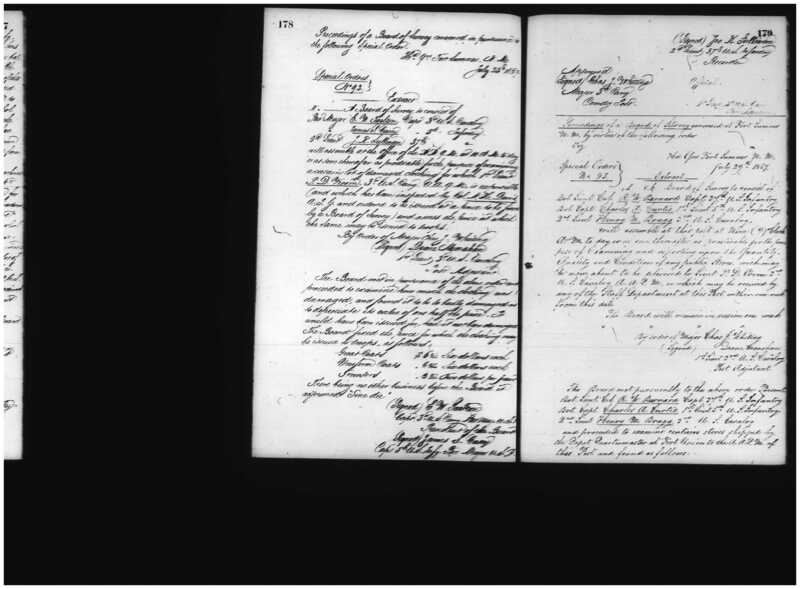 178
Proceedings of a Board of Survey convened in pursuance to
the following Special Order
Hd. Qrs. Fort Sumner, N. M.
July 1867
Special Orders
No 92.
Extract
A Board of Survey to consist of
Bvt Major Capt 3d U.S. Cavalry
5th Infantry
2d Lieut 37th
will assemble at the office of the
or as soon thereafter as practicable for the purpose of
a certain lot of damaged clothing for which 1st Lieut
3d U.S. Cavy. A.A.Q.M. is responsible
(and which has been inspected by
and ordered to be issued to
by a Board of Survey) and assess the price at which
the same may be issued to troops.
By Order of Major Chas J. Whiting
(Signed)
1st Lieut 3d U.S. Cavalry
Post Adjutant
The Board met in pursuance of the above order and
proceeded to examine how much the clothing was
damaged, and found it to be badly damaged so as
to depreciate its value of one half the price it
would have been issued for, had it not been damaged
The Board fixed the price for which the clothing may
be issued to troops, as follows.
Great Coats Six dollars each
Uniform Coats Six dollars each
Trowsers Two dollars pr pair
There being no other business before the Board it
adjourned Sine die
(Signed)
Capt 3d U.S. Cavy
President of the Board
(Signed) James
Capt 5th U.S. Infy Bvt Major U.S.A.
179
(Signed) Jno. K.
2d Lieut, 37th U.S. Infantry
Recorder
Approved
(Signed) Chas J. Whiting
Major 3d Cavy
Comdg Post
Official
Proceedings of a Board of Survey convened at Fort Sumner
N. M. by virtue of the following order
Viz
Hd Qrs Fort Sumner N. M.
July 29th 1867.
Special Orders
No. 93.
Extract
A Board of Survey to consist of
Bvt Lieut Col. A. W. Barnard Capt. 37th U.S. Infantry
Bvt Capt Charles A. Curtis 1st Lieut 5th U.S. Infantry
2nd Lieut Henry M. Bragg 3rd U.S. Cavalry,
will assemble at this post at Nine (9) O'clock
A.M. to day or as soon thereafter as practicable for the pur-
pose of Examining and reporting upon the Quantity
Quality and Condition of any public Stores which may
be now, about to be received by Lieut 3rd
U.S. Cavalry A.A.Q.M. or which may be received by
any of the Staff Department at this Post within one week
from this date
The Board will remain in session one week
By order of Major Chas J. Whiting
(Signed)
1st Lieut 3rd U.S. Cavalry
Post Adjutant
The Board met pursuantly to the above order Present
Bvt Lieut Col A. W. Barnard Capt 37th U.S. Infantry
Bvt Capt Charles A. Curtis 1st Lieut 5th U.S. Infantry
2nd Lieut Henry M. Bragg 3rd U.S. Cavalry
and proceeded to examine certain stores shipped by
the Depot Quartermaster at Fort Union to the A.A.Q.M. of
this Post and found as follows.